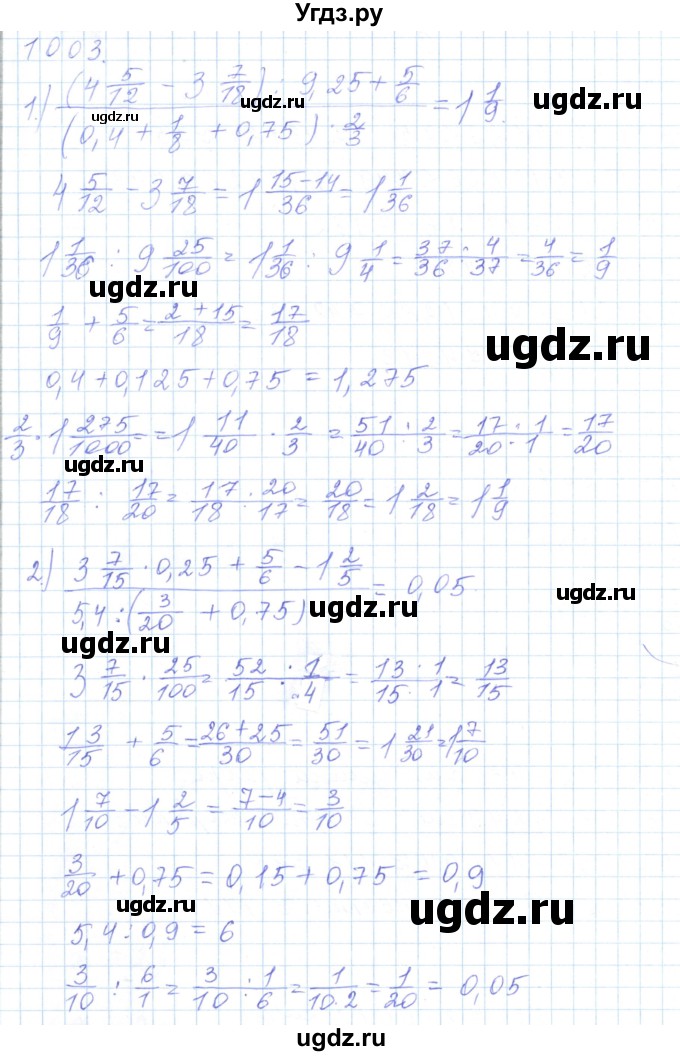 Угдз.ру
1003.
1.) ((4 5/12 - 3 7/18) : 9,25 + 5/6) / ((0,4 + 1/8 + 0,75) · 2/3) = 1 1/9.
ugdz.ru ugdz.ru ugdz.ru
4 5/12 - 3 7/18 = 1 (15-14)/36 = 1 1/36
1 1/36 : 9 25/100 = 1 1/36 : 9 1/4 = 37/36 · 4/37 = 4/36 = 1/9
ugdz.ru
1/9 + 5/6 = (2+15)/18 = 17/18
ugdz.ru
0,4 + 0,125 + 0,75 = 1,275
2/3 · 1 275/1000 = = 1 11/40 · 2/3 = 51/40 · 2/3 = (17 · 1)/(20 · 1) = 17/20
ugdz.ru
17/18 : 17/20 = (17 · 20)/(18 · 17) = 20/18 = 1 2/18 = 1 1/9
ugdz.ru
2.) (3 7/15 · 0,25 + 5/6 - 1 2/5) / (5,4 : (3/20 + 0,75)) = 0,05.
ugdz.ru ugdz.ru
ugdz.ru
3 7/15 · 25/100 = 52/15 · 1/4 = (13 · 1)/(15 · 1) = 13/15
ugdz.ru ugdz.ru
13/15 + 5/6 = (26+25)/30 = 51/30 = 1 21/30 = 1 7/10
ugdz.ru
1 7/10 - 1 2/5 = (7-4)/10 = 3/10
3/20 + 0,75 = 0,15 + 0,75 = 0,9
ugdz.ru ugdz.ru
5,4 : 0,9 = 6
ugdz.ru
3/10 : 6/1 = 3/10 · 1/6 = 1/(10·2) = 1/20 = 0,05
ugdz.ru